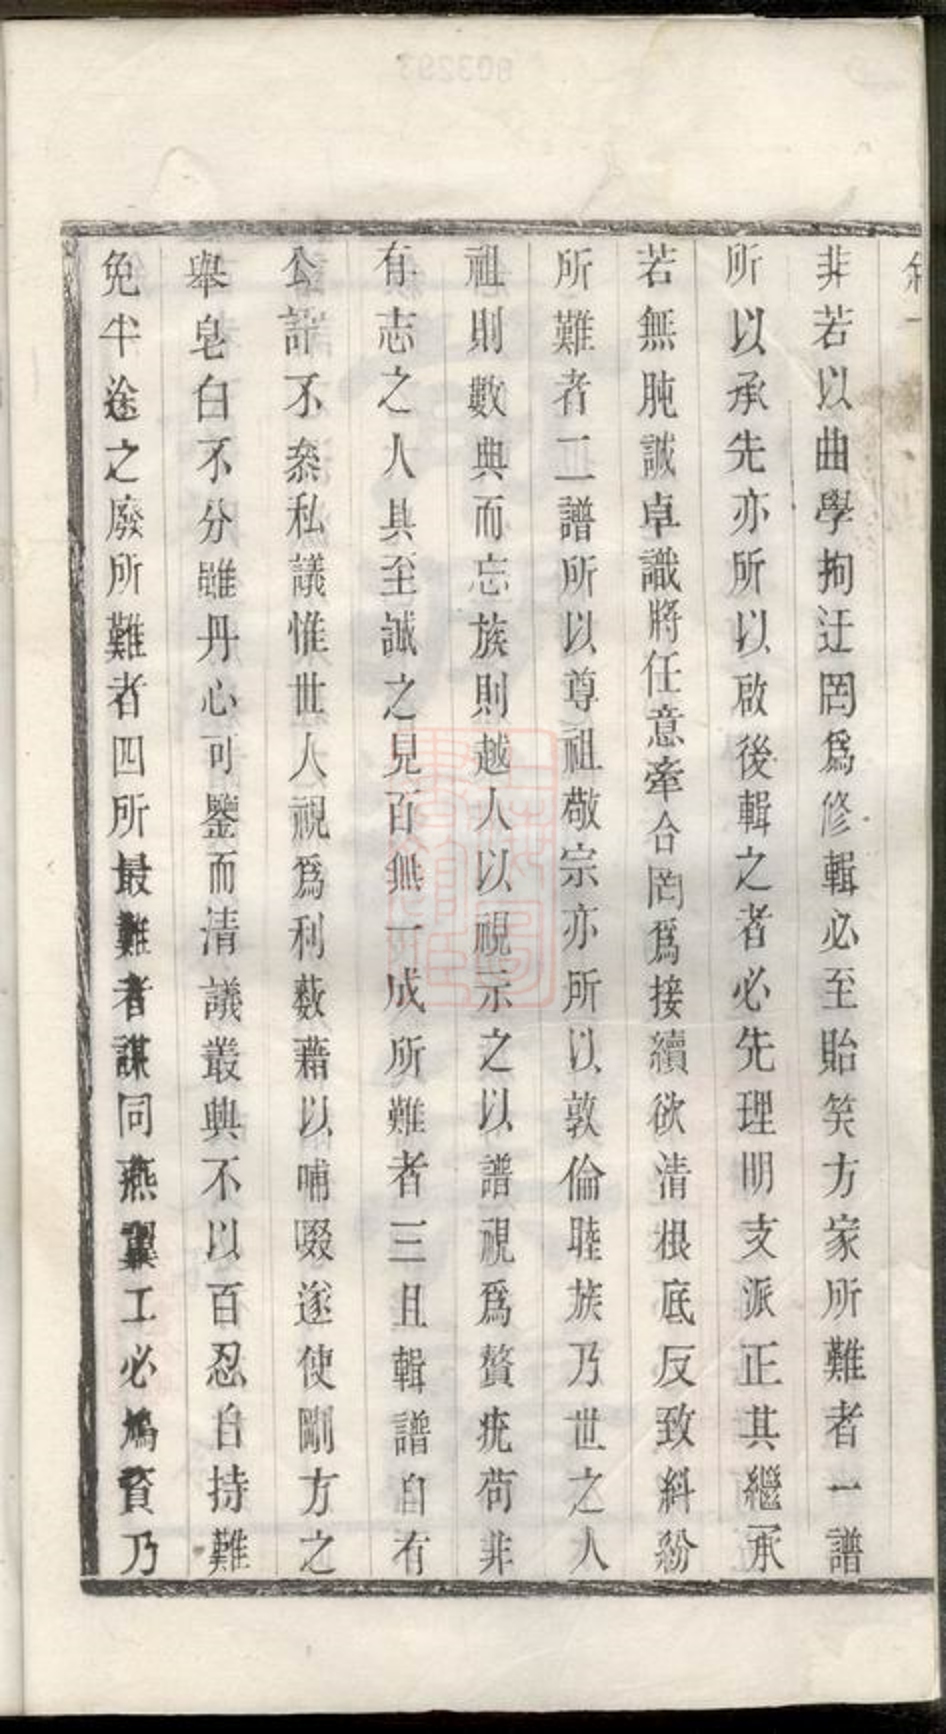 非若以曲學拘迂罔爲修輯必至貽笑方家所難者一譜
所以承先亦所以啟後輯之者必先理明支派正其繼承
若無肫誠卓識將任意牽合罔爲接續欲清根底反致糾紛
所難者二譜所以尊祖敬宗亦所以敦倫睦族乃世之人
祖則數典而忘族則越人以視示之以譜視爲贅疣苟非
有志之人具至誠之見百無一成所難者三且輯譜自有
公評不叅私議惟世人視爲利藪藉以哺啜遂使剛方之
舉皂白不分雖丹心可鑒而清議叢興不以百忍自持難
免半途之廢所難者四所最難者謀同燕翼工必鳩資乃